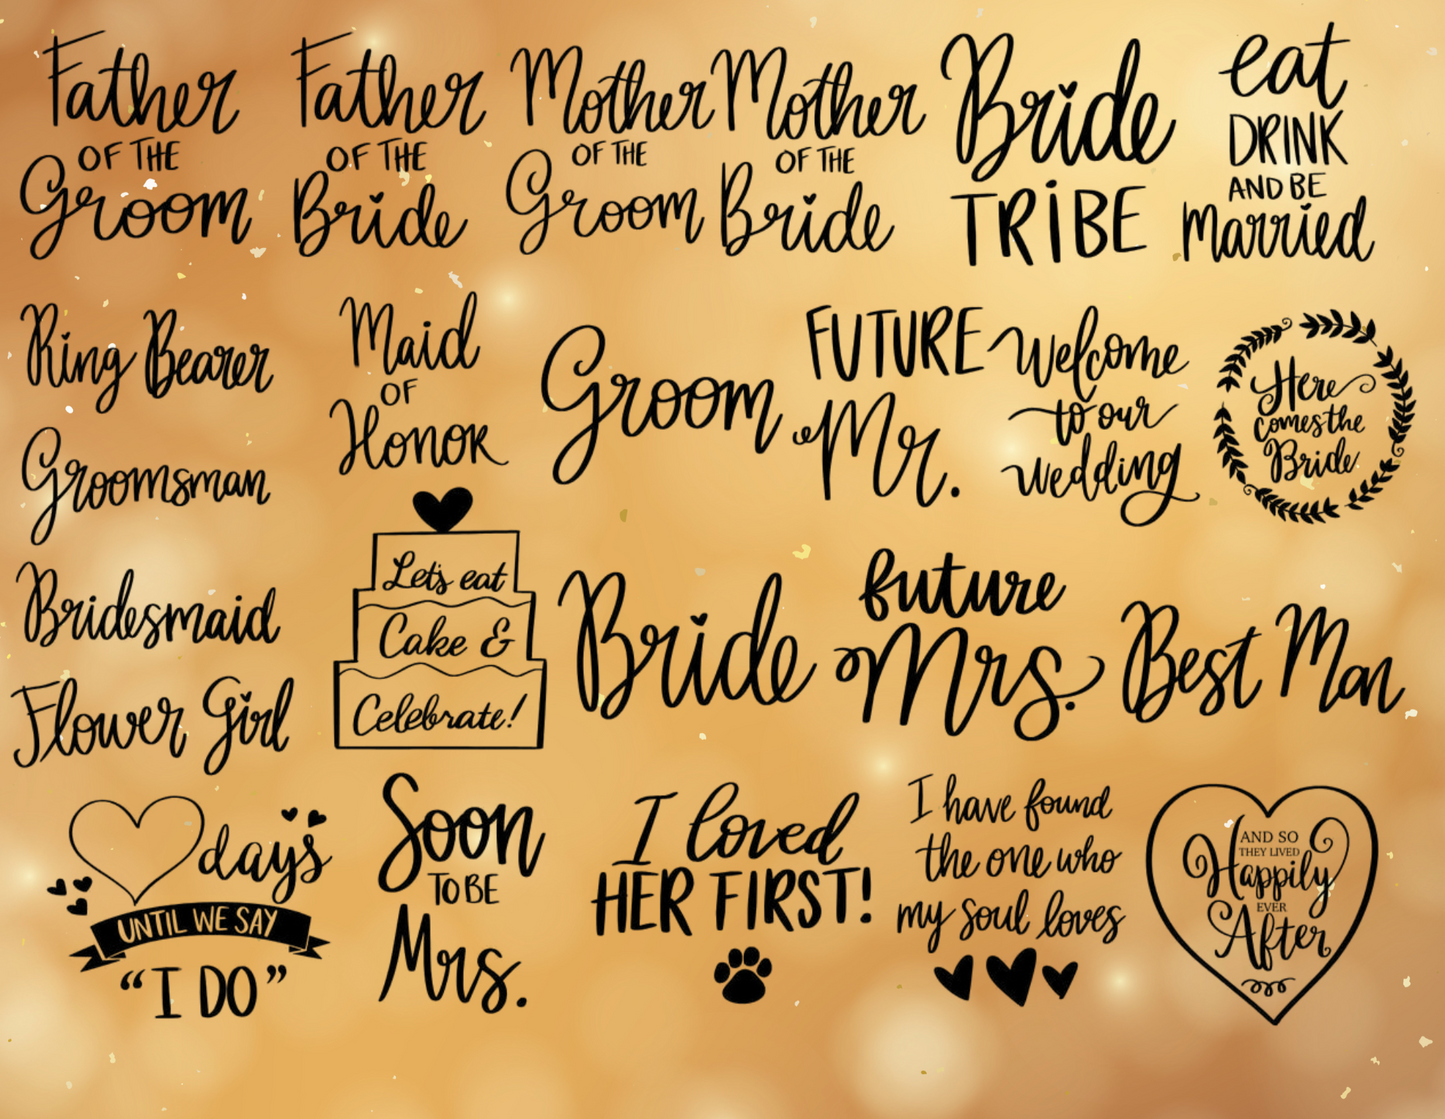 Father
OF THE
Groom
Father
OF THE
Bride
Mother
OF THE
Groom
Mother
OF THE
Bride
Bride
TRiBE
eat
DRINK
AND BE
Married
Ring Bearer
Groomsman
Bridesmaid
Flower Girl
Maid
OF
Honor
Let's eat
Cake &
Celebrate!
Groom
FUTURE
Mr.
Welcome
to our
wedding
Here
comes the
Bride
Bride
future
Mrs.
Best Man
days
UNTIL WE SAY
“I DO”
Soon
TO BE
Mrs.
I loved
HER FIRST!
I have found
the one who
my soul loves
AND SO
THEY LIVED
Happily
EVER
After